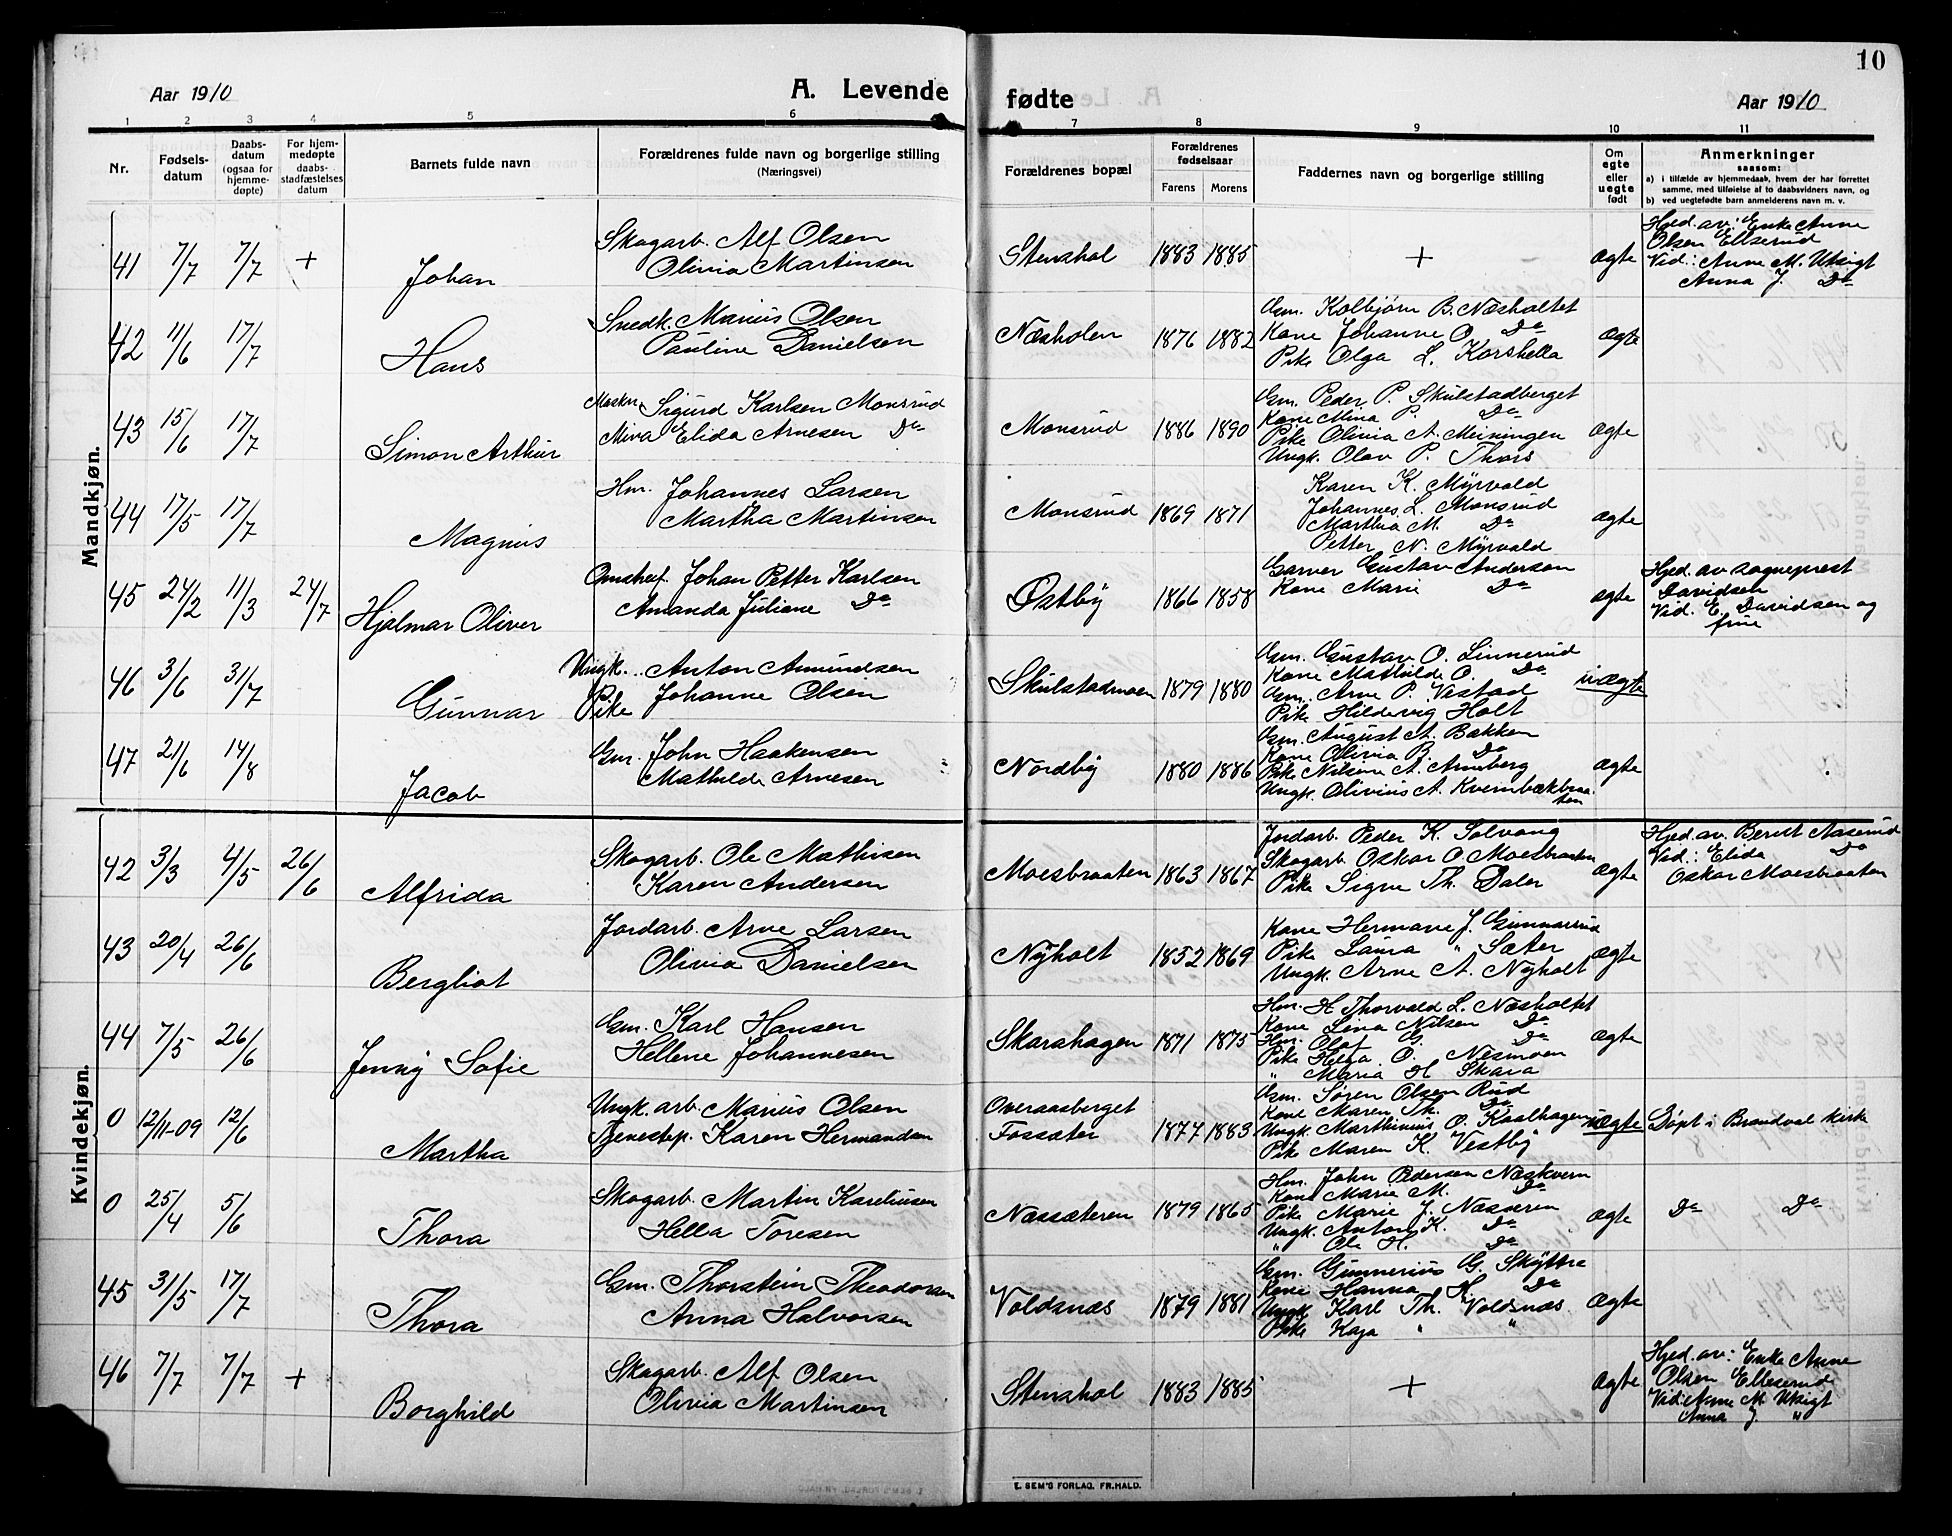 10
Aar 1910
A. Levende
fødte
Aar 1910
1 2 3 4 5 6 7 8 9 10 11
Nr.
Fødsels-
datum
Daabs-
datum
(ogsaa for
hjemme-
døpte)
For hjem-
medøpte
daabs-
stadfæstelses
datum
Barnets fulde navn
Forældrenes fulde navn og borgerlige stilling
(Næringsvei)
Forældrenes bopæl
Forældrenes
fødselsaar
Farens Morens
Faddernes navn og borgerlige stilling
Om
egte
eller
uegte
født
Anmerkninger
saasom:
a) i tilfælde av hjemmedaab, hvem der har forrettet
samme, med tilføielse af to daabsvidners navn, og
b) ved uegtefødte barn anmelderens navn m. v.
Mandkjøn.
41 7/7 7/7 + Johan
Skogarb. Alf Olsen
Olivia Martinsen
Stenshol 1883 1885 + ægte
Hjed. av: Enke Anne
Olsen Ellserud
Vid.: Anne M. Utsigt
Anna J. Do
42 11/6 17/7 Hans
Snedk. Marius Olsen
Pauline Danielsen
Næsholen 1876 1882
Gm. Kolbjørn B. Næsholtet
Kone Johanne O. Do
Pike Olga L. Korshella
ægte
43 15/6 17/7 Simon Arthur
Sigurd Karlsen Monsrud
Mina Elida Arnesen Do
Monsrud 1886 1890
Gm. Peder P. Skulstadberget
Kone Mina P. Do
Pike Olivia A. Meiningen
Ungk. Olav P. Thors
ægte
44 17/5 17/7 Magnus
Hm. Johannes Larsen
Martha Martinsen
Monsrud 1869 1871
Karen K. Myrvold
Johannes L. Monsrud
Martha M. Do
Petter N. Myrvold
ægte
45 24/2 11/3 24/7 Hjalmar Oliver
Johan Petter Karlsen
Amanda Juliane Do
Østby 1866 1858
Garver Gustav Anderson
Kone Marie Do
ægte
Hjed. av sogneprest
Davidsen
Vid. E. Davidsen og
frue
46 3/6 31/7 Gunnar
Ungk. Anton Amundsen
Pike Johanne Olsen
Skulstadmoen 1879 1880
Gm. Gustav O. Linnerud
Kone Mathilde O. Do
Gm. Arne P. Vestad
Pike Hildevig Holt
uægte
47 21/6 14/8 Jacob
Gm. John Haakensen
Mathilde Arnesen
Nordby 1880 1886
Gm. August A. Bakken
Kone Olivia B. Do
Pike Nilsine A. Arneberg
Ungk. Olivius A. Kvernbækbraa-
ten
ægte
Kvindekjøn.
42 3/3 4/5 26/6 Alfrida
Skogarb. Ole Mathisen
Karen Andersen
Moesbraaten 1863 1867
Jordarb. Peder K. Solvang
Skogarb Oskar O. Moesbraaten
Pike Signe Th. Daler
ægte
Hjed. av. Berit Aaserud
Vid.: Elida Do
Oskar Moesbraaten
43 20/4 26/6 Bergliot
Jordarb. Arne Larsen
Olivia Danielsen
Nyholt 1852 1869
Kone Hermane J. Gunnarsrud
Pike Laura " Sæter
Ungk. Arne A. Nyholt
ægte
44 7/5 26/6 Jenny Sofie
Gm. Karl Hansen
Hellene Johannesen
Skarahagen 1871 1875
Hm. H Thorvald L. Næsholtet
Kone Lina Nilsen Do
Hm. Olaf G. Do
Pike Helga O. Nesmoen
" Maria H. Skara
ægte
0 12/11-09 12/6 Martha
Ungk. arb. Marius Olsen
Tjenestep. Karen Hermansen
Overaasberget
Fossæter 1877 1883
Gm. Søren Olsen Rud
Kone Maren Th. Do
Ungk. Marthinius O. Kaalhagen
Pike Maren K. Vestby
uægte
Døpt i Brandval kirke
0 25/4 5/6 Thora
Skogarb. Martin Kareliusen
Hella Toresen
Næssæteren 1879 1865
Hm. John Pedersen Næskvern
Kone Marie M. Do
Pike Marie J. Næsseren
Ungk. Anton K. Do
" Ole H. Do
ægte
Do Do
45 31/5 17/7 Thora
Gm. Thorstein Theodorsen
Anna Halvorsen
Voldsnæs 1879 1881
Gm. Gunnerius G. Skyttra
Kone Hanna H. Do
Ungk Karl Th. Voldsnæs
Pike Kaja " "
ægte
46 7/7 7/7 + Borghild
Skogarb. Alf Olsen
Olivia Martinsen
Stenshol 1883 1885 + ægte
Hjed. av: Enke Anne
Olsen Ellserud
Vid: Anne M. Utsigt
Anna J. "
E. SEM'S FORLAG, FR.HALD.